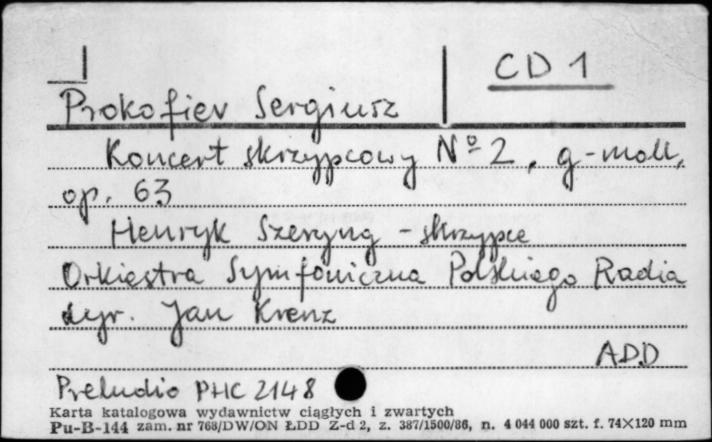 CD 1
Prokofiev Sergiusz
Koncert skrzypcowy Nº 2, g-moll,
op. 63
Henryk Szeryng - skrzypce
Orkiestra Symfoniczna Polskiego Radia
dyr. Jan Krenz
ADD
Preludio PHC 2148
Karta katalogowa wydawnictw ciągłych i zwartych
Pu-B-144 zam. nr 768/DW/ON ŁDD Z-d 2, z. 387/1500/86, n. 4 044 000 szt. f. 74×120 mm